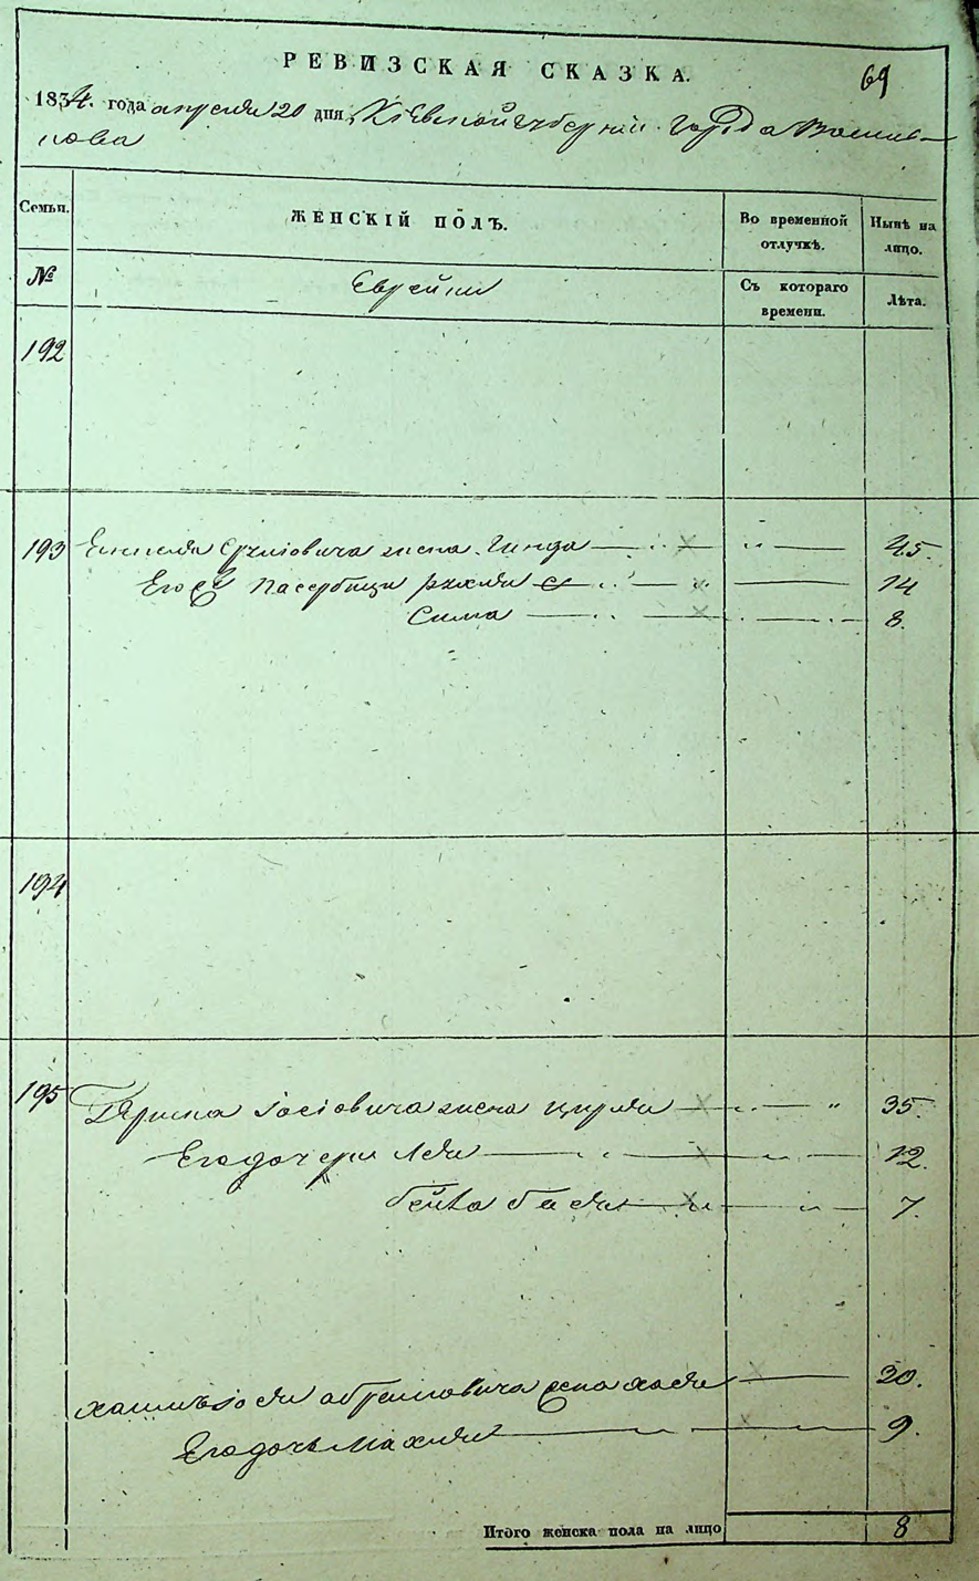 РЕВИЗСКАЯ СКАЗКА.
69
1834. года апреля 20 дня, Киевской губернии города Василь-
кова
Семьи.
ЖЕНСКІЙ ПОЛЪ.
Во временной
отлучкѣ.
Нынѣ на
лицо.
№
Еврейки
Съ котораго
времени.
Лѣта.
192
193 Сруліовича жена Гинда 45.
Его пасербици Рихля 14
Сима 8.
194
195 Гершка Іосіовича жена Цирля 35.
Его дочери Лея 12.
Бейла Бася 7.
Абрамовича жена Хая 30.
Его дочь Махля 9.
Итого женска пола на лицо 8